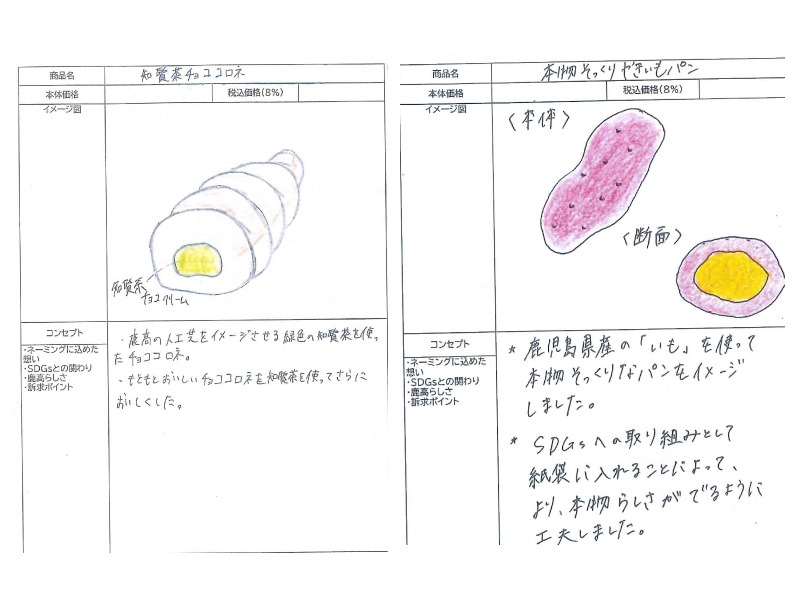 商品名
知覧茶チョココロネ
本体価格
税込価格(8%)
イメージ図
知覧茶
チョコクリーム
コンセプト
・ネーミングに込めた
想い
・SDGsとの関わり
・鹿高らしさ
・訴求ポイント
・鹿高の人工芝をイメージさせる緑色の知覧茶を使っ
たチョココロネ。
・もともとおいしいチョココロネを知覧茶を使ってさらに
おいしくした。
商品名
本物そっくりやきいもパン
本体価格
税込価格(8%)
イメージ図
〈本体〉
〈断面〉
コンセプト
・ネーミングに込めた
想い
・SDGsとの関わり
・鹿高らしさ
・訴求ポイント
* 鹿児島県産の「いも」を使って
本物そっくりなパンをイメージ
しました。
* SDGsへの取り組みとして
紙袋に入れることによって、
より、本物らしさがでるように
工夫しました。